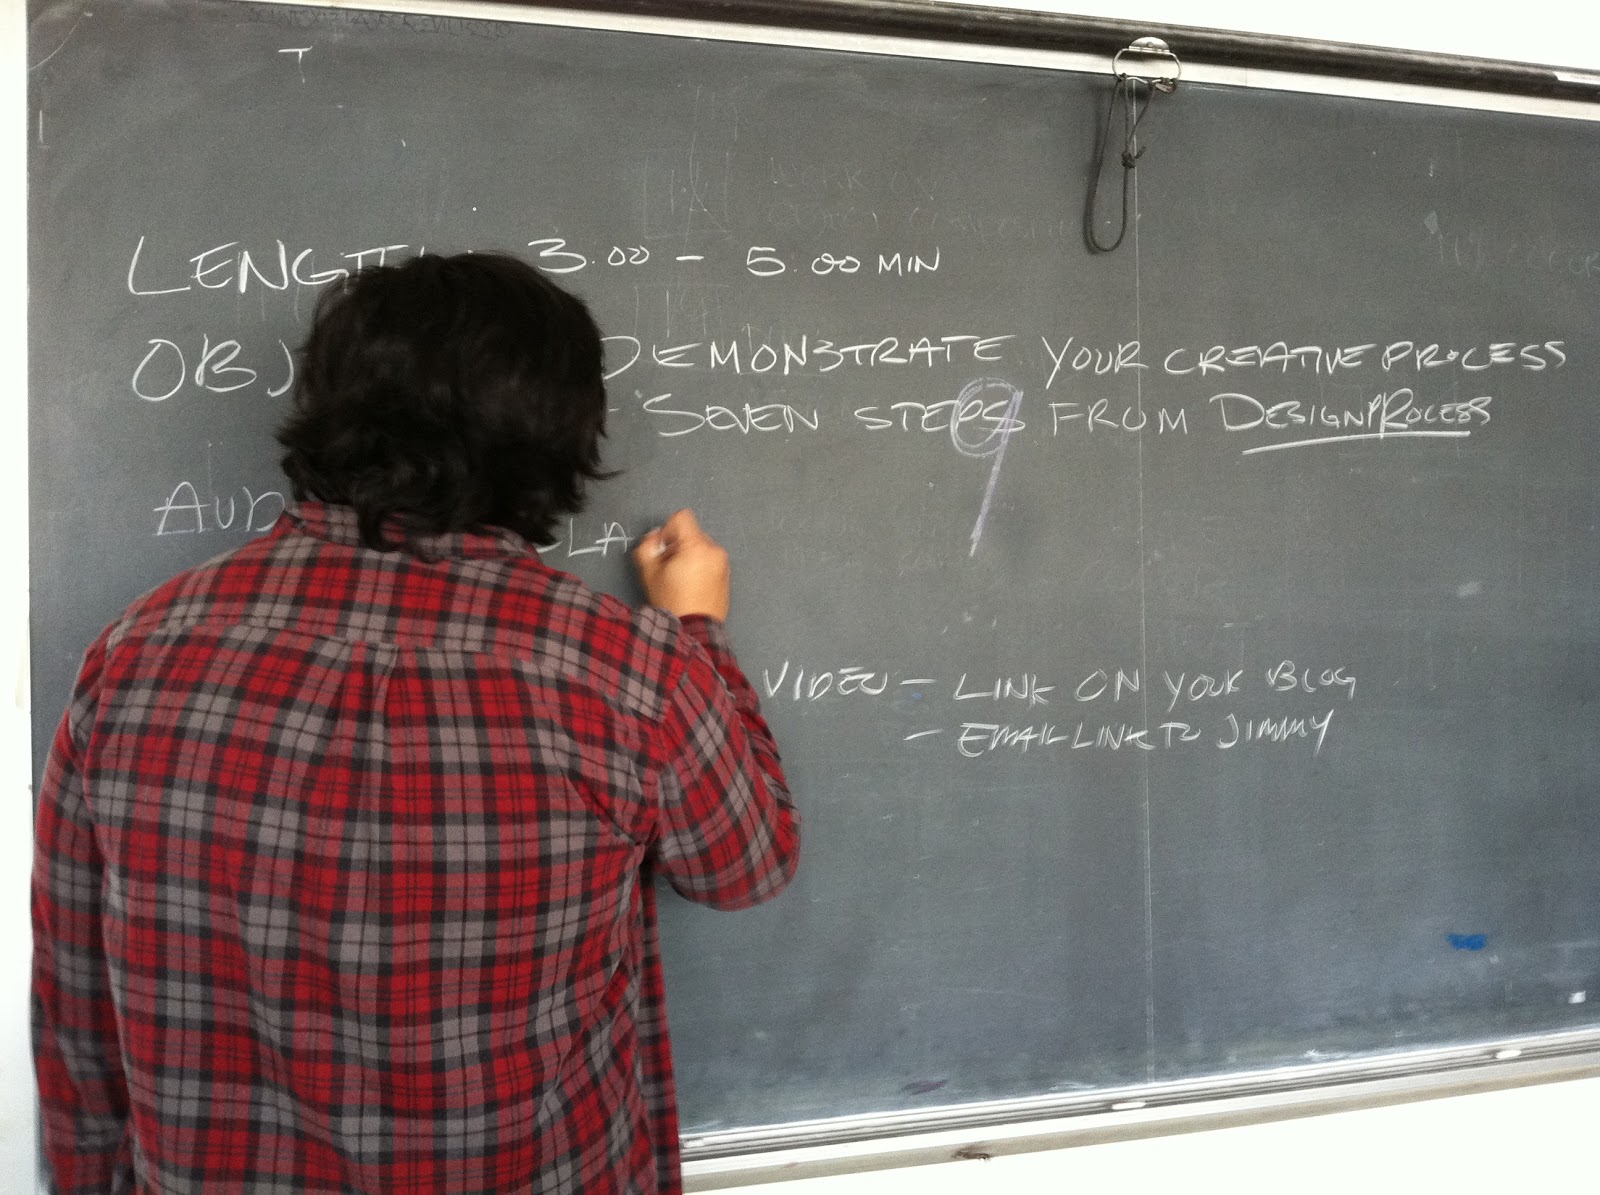 T
LENGTH: 3.00 - 5.00 MIN
OBJ DEMONSTRATE YOUR CREATIVE PROCESS
- SEVEN STEPS FROM DESIGN PROCESS
AUD CLA
VIDEO - LINK ON YOUR BLOG
- EMAIL LINK TO JIMMY